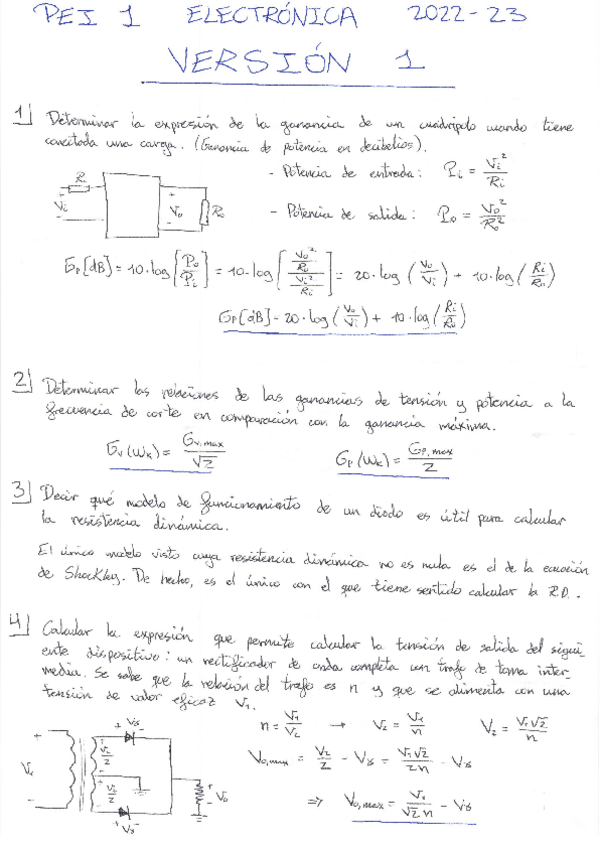 PEI 1 ELECTRÓNICA 2022-23
VERSIÓN 1
1) Determinar la expresión de la ganancia de un cuadripolo cuando tiene
conectada una carga. (Ganancia de potencia en decibelios).
Ri
Vi
Vo
Ro
- Potencia de entrada: Pi = Vi²/Ri
- Potencia de salida: Po = Vo²/Ro
Gp[dB] = 10·log[Po/Pi] = 10·log[(Vo²/Ro)/(Vi²/Ri)] = 20·log(Vo/Vi) + 10·log(Ri/Ro)
Gp[dB] = 20·log(Vo/Vi) + 10·log(Ri/Ro)
2) Determinar las relaciones de las ganancias de tensión y potencia a la
frecuencia de corte en comparación con la ganancia máxima.
Gv(ωk) = Gv,max/√2 Gp(ωk) = Gp,max/2
3) Decir qué modelo de funcionamiento de un diodo es útil para calcular
la resistencia dinámica.
El único modelo visto cuya resistencia dinámica no es nula es el de la ecuación
de Shockley. De hecho, es el único con el que tiene sentido calcular la R.D.
4) Calcular la expresión que permite calcular la tensión de salida del sigui-
ente dispositivo: un rectificador de onda completa con trafo de toma inter-
media. Se sabe que la relación del trafo es n y que se alimenta con una
tensión de valor eficaz V₁.
n = V₁/V₂ → V₂ = V₁/n V₂ = V₁√2/n
Vo,max = V₂/2 - Vγ = V₁√2/2n - Vγ
⇒ Vo,max = V₁/√2n - Vγ
V₁
V₂/2
V₂/2
Vγ
Vγ
Vo